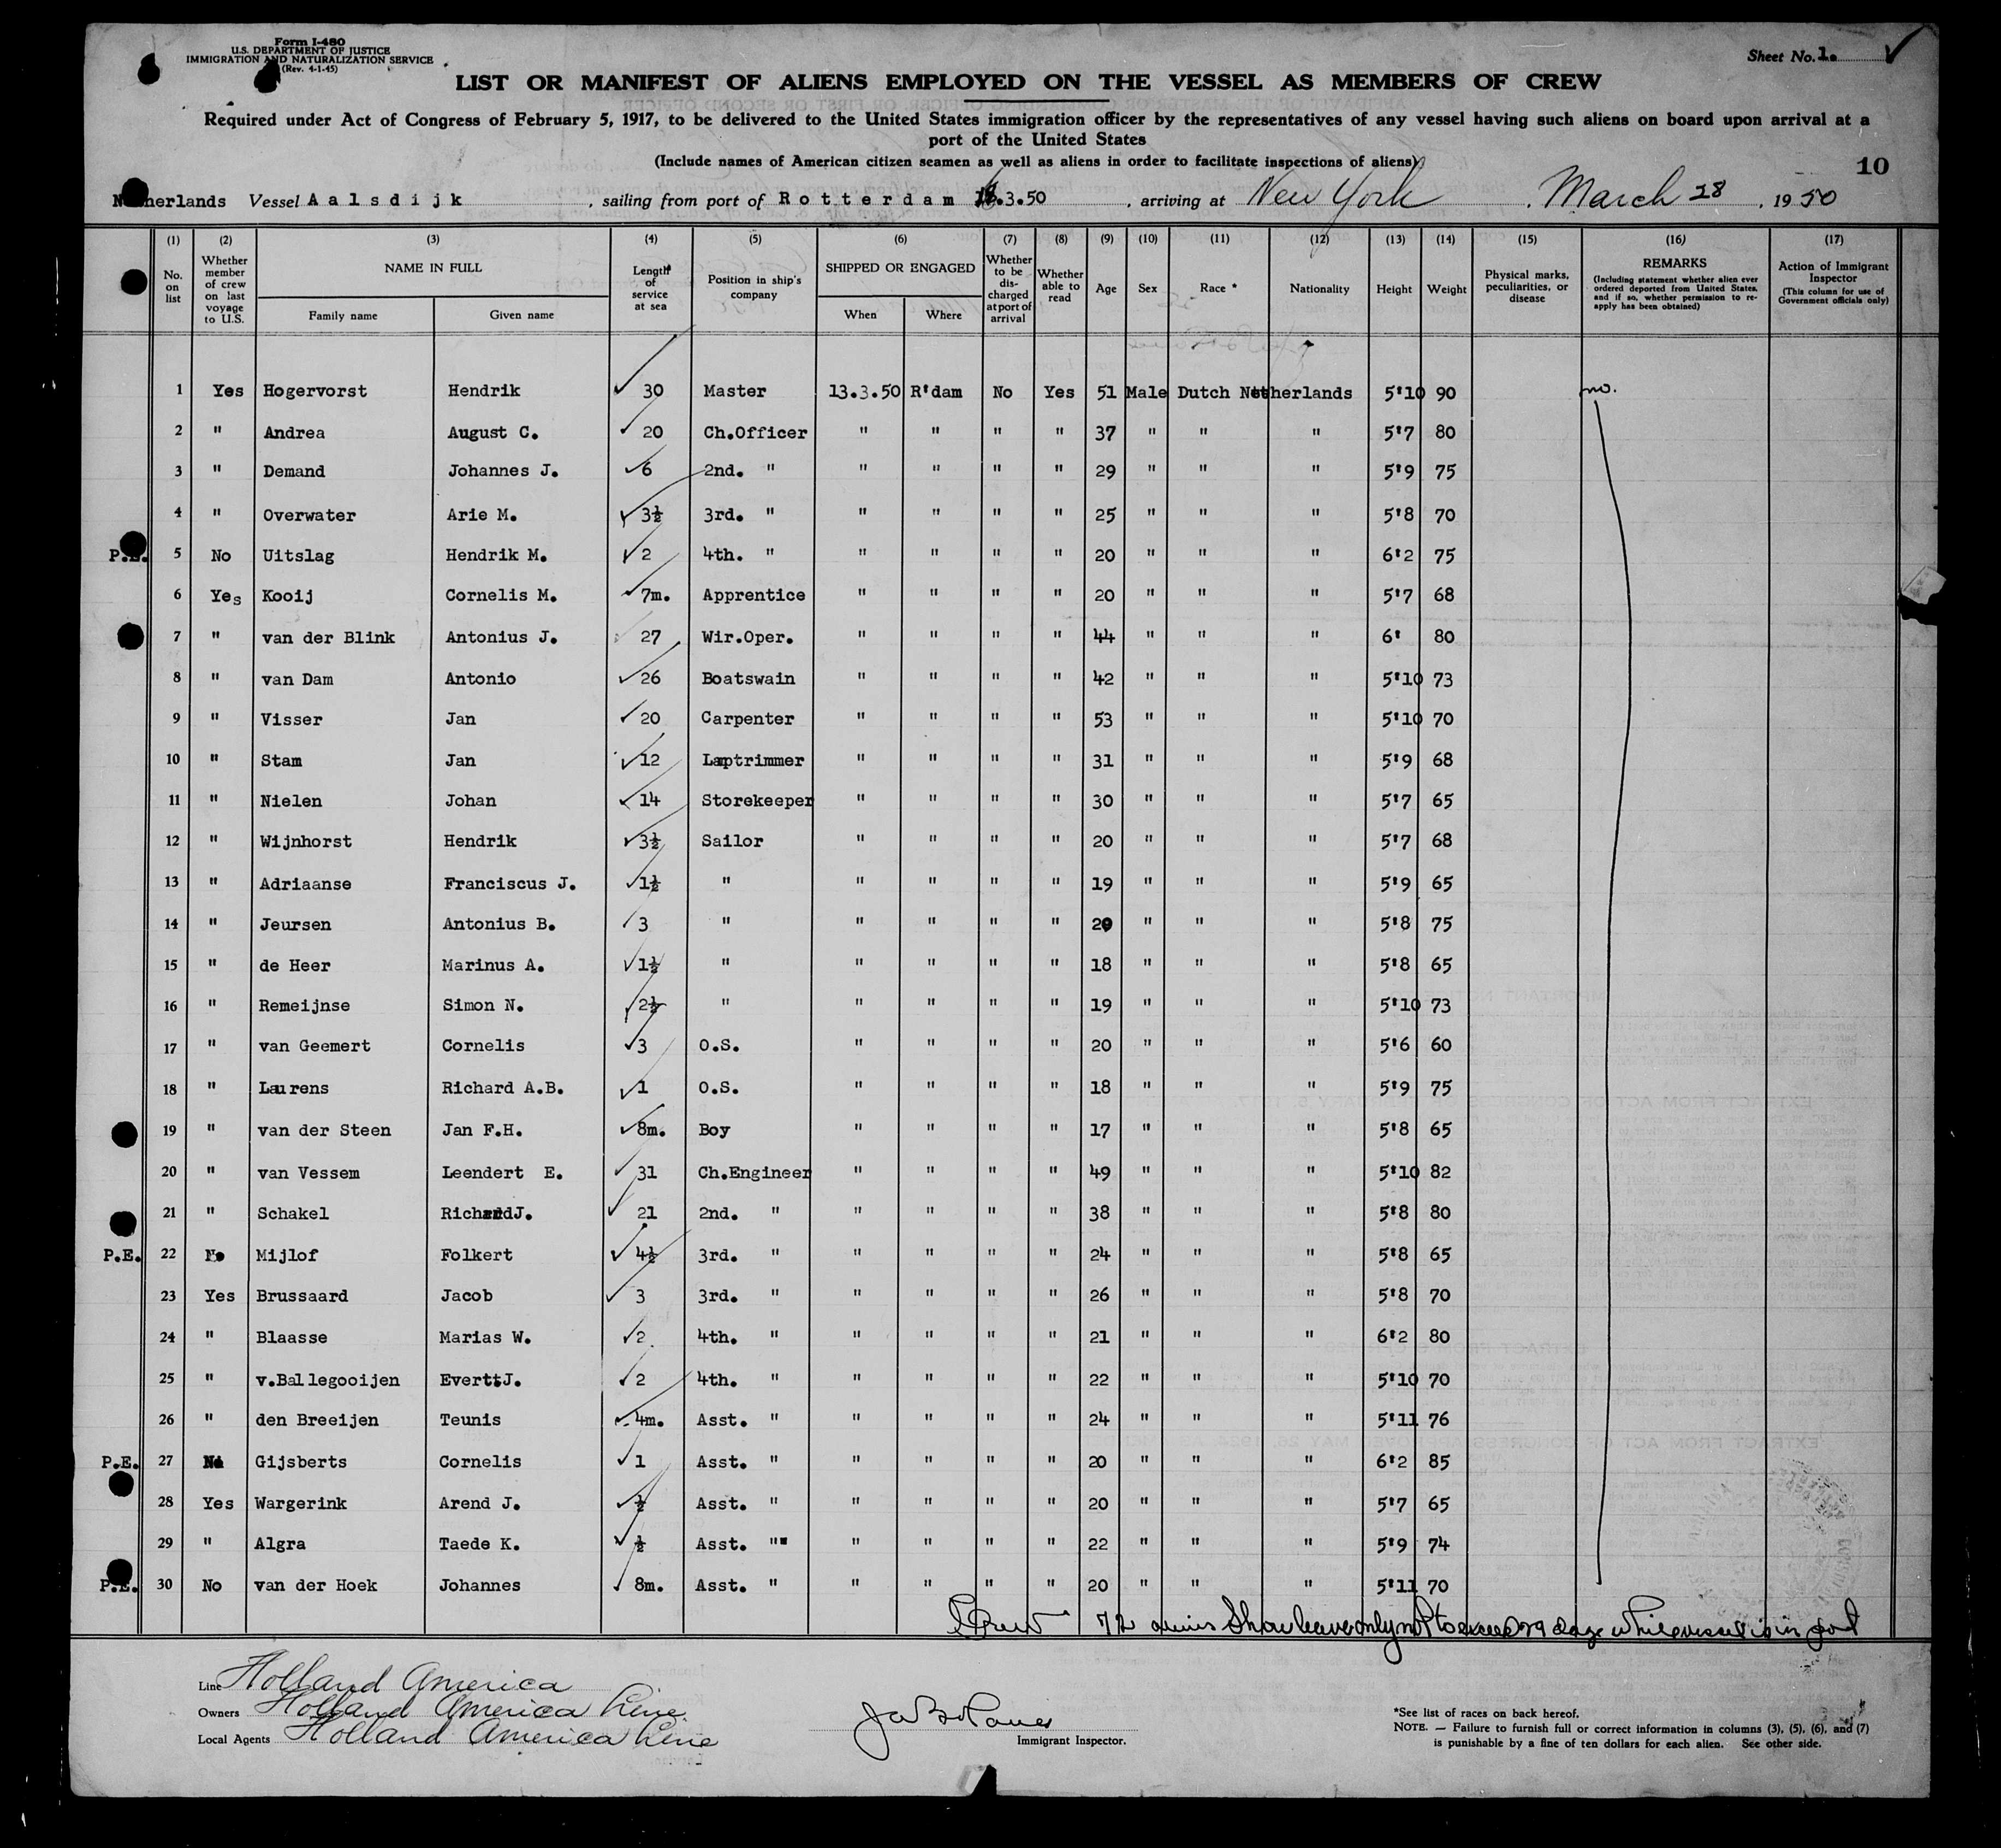 Form I-480
U.S. DEPARTMENT OF JUSTICE
IMMIGRATION AND NATURALIZATION SERVICE
(Rev. 4-1-45)
Sheet No. 1.
LIST OR MANIFEST OF ALIENS EMPLOYED ON THE VESSEL AS MEMBERS OF CREW
Required under Act of Congress of February 5, 1917, to be delivered to the United States immigration officer by the representatives of any vessel having such aliens on board upon arrival at a
port of the United States
(Include names of American citizen seamen as well as aliens in order to facilitate inspections of aliens)
10
Netherlands Vessel Aalsdijk, sailing from port of Rotterdam .3.50, arriving at New York, March 28, 1950
(1) (2) (3) (4) (5) (6) (7) (8) (9) (10) (11) (12) (13) (14) (15) (16) (17)
No. on list Whether member of crew on last voyage to U.S. NAME IN FULL Family name Given name Length of service at sea Position in ship's company SHIPPED OR ENGAGED When Where Whether to be discharged at port of arrival Whether able to read Age Sex Race * Nationality Height Weight Physical marks, peculiarities, or disease REMARKS (Including statement whether alien ever ordered deported from United States, and if so, whether permission to re-apply has been obtained) Action of Immigrant Inspector (This column for use of Government officials only)
1 Yes Hogervorst Hendrik 30 Master 13.3.50 R'dam No Yes 51 Male Dutch Netherlands 5'10 90 no.
2 " Andrea August C. 20 Ch.Officer " " " " 37 " " " 5'7 80
3 " Demand Johannes J. 6 2nd. " " " " " 29 " " " 5'9 75
4 " Overwater Arie M. 3½ 3rd. " " " " " 25 " " " 5'8 70
P.E. 5 No Uitslag Hendrik M. 2 4th. " " " " " 20 " " " 6'2 75
6 Yes Kooij Cornelis M. 7m. Apprentice " " " " 20 " " " 5'7 68
7 " van der Blink Antonius J. 27 Wir.Oper. " " " " 44 " " " 6' 80
8 " van Dam Antonio 26 Boatswain " " " " 42 " " " 5'10 73
9 " Visser Jan 20 Carpenter " " " " 53 " " " 5'10 70
10 " Stam Jan 12 Lamptrimmer " " " " 31 " " " 5'9 68
11 " Nielen Johan 14 Storekeeper " " " " 30 " " " 5'7 65
12 " Wijnhorst Hendrik 3½ Sailor " " " " 20 " " " 5'7 68
13 " Adriaanse Franciscus J. 1½ " " " " " 19 " " " 5'9 65
14 " Jeursen Antonius B. 3 " " " " " 20 " " " 5'8 75
15 " de Heer Marinus A. 1½ " " " " " 18 " " " 5'8 65
16 " Remeijnse Simon N. 2½ " " " " " 19 " " " 5'10 73
17 " van Geemert Cornelis 3 O.S. " " " " 20 " " " 5'6 60
18 " Laurens Richard A.B. 1 O.S. " " " " 18 " " " 5'9 75
19 " van der Steen Jan F.H. 8m. Boy " " " " 17 " " " 5'8 65
20 " van Vessem Leendert E. 31 Ch.Engineer " " " " 49 " " " 5'10 82
21 " Schakel Richard J. 21 2nd. " " " " " 38 " " " 5'8 80
P.E. 22 No Mijlof Folkert 4½ 3rd. " " " " " 24 " " " 5'8 65
23 Yes Brussaard Jacob 3 3rd. " " " " " 26 " " " 5'8 70
24 " Blaasse Marias W. 2 4th. " " " " " 21 " " " 6'2 80
25 " v.Ballegooijen Evert J. 2 4th. " " " " " 22 " " " 5'10 70
26 " den Breeijen Teunis 4m. Asst. " " " " " 24 " " " 5'11 76
P.E. 27 No Gijsberts Cornelis 1 Asst. " " " " " 20 " " " 6'2 85
28 Yes Wargerink Arend J. ½ Asst. " " " " " 20 " " " 5'7 65
29 " Algra Taede K. ½ Asst. "" " " " " 22 " " " 5'9 74
P.E. 30 No van der Hoek Johannes 8m. Asst. " " " " " 20 " " " 5'11 70
Shore leave only not to exceed 29 days while vessel is in port
Line Holland America
Owners Holland America Line
Local Agents Holland America Line
Immigrant Inspector.
*See list of races on back hereof.
NOTE. — Failure to furnish full or correct information in columns (3), (5), (6), and (7)
is punishable by a fine of ten dollars for each alien. See other side.